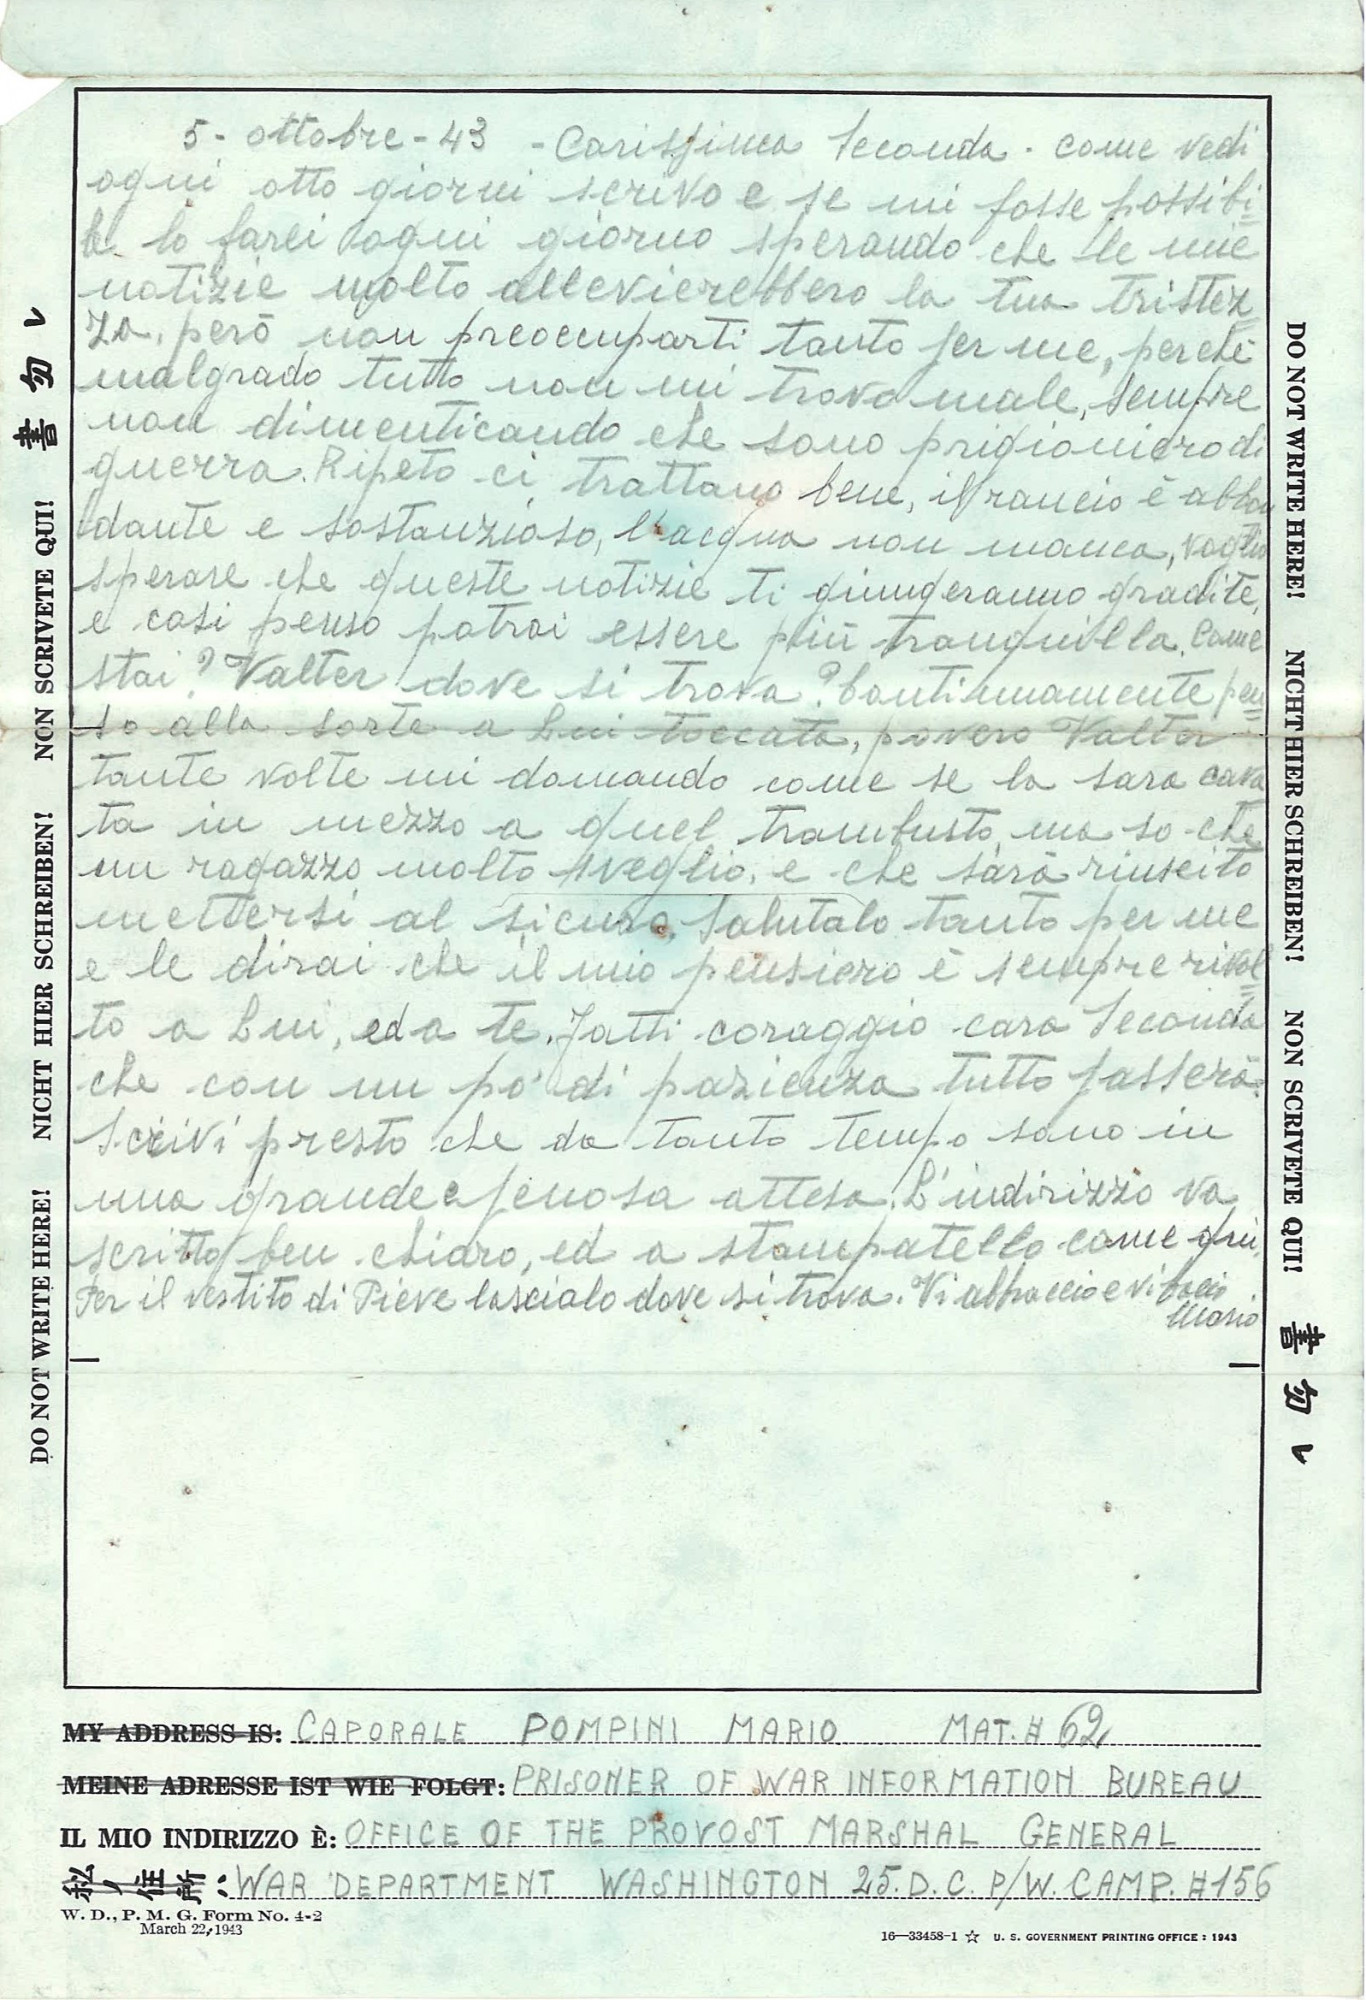 5 - ottobre - 43 - Carissima Seconda - come vedi
ogni otto giorni scrivo e se mi fosse possibi=
le lo farei ogni giorno sperando che le mie
notizie molto allevierebbero la tua tristez=
za, però non preoccuparti tanto per me, perchè
malgrado tutto non mi trovo male, sempre
non dimenticando che sono prigioniero di
guerra. Ripeto ci trattano bene, il rancio è abbon
dante e sostanzioso, l'acqua non manca, voglio
sperare che queste notizie ti giungeranno gradite,
e cosi penso potrai essere più tranquilla. Come
stai? Valter dove si trova? Continuamente pen=
so alla sorte a Lui toccata, povero Valter
tante volte mi domando come se la sara cava
ta in mezzo a quel trambusto, ma so che
un ragazzo molto sveglio, e che sarà riuscito
mettersi al sicuro. Salutalo tanto per me
e le dirai che il mio pensiero è sempre rivol=
to a Lui, ed a te. Fatti coraggio cara Seconda
che con un pò di pazienza tutto passerà.
Scrivi presto che da tanto tempo sono in
una grande e penosa attesa. L'indirizzo va
scritto ben chiaro, ed a stampatello come qui,
Per il vestito di Pieve lascialo dove si trova. Vi abbraccio e vi bacio
Mario
DO NOT WRITE HERE! NICHT HIER SCHREIBEN! NON SCRIVETE QUI! 書勿レ
DO NOT WRITE HERE! NICHT HIER SCHREIBEN! NON SCRIVETE QUI! 書勿レ
MY ADDRESS IS: CAPORALE POMPINI MARIO MAT. # 62,
MEINE ADRESSE IST WIE FOLGT: PRISONER OF WAR INFORMATION BUREAU
IL MIO INDIRIZZO È: OFFICE OF THE PROVOST MARSHAL GENERAL
私ノ住所ハ: WAR DEPARTMENT WASHINGTON 25. D. C. P/W. CAMP. #156
W. D., P. M. G. Form No. 4-2
March 22, 1943
16—33458-1 ☆ U. S. GOVERNMENT PRINTING OFFICE : 1943